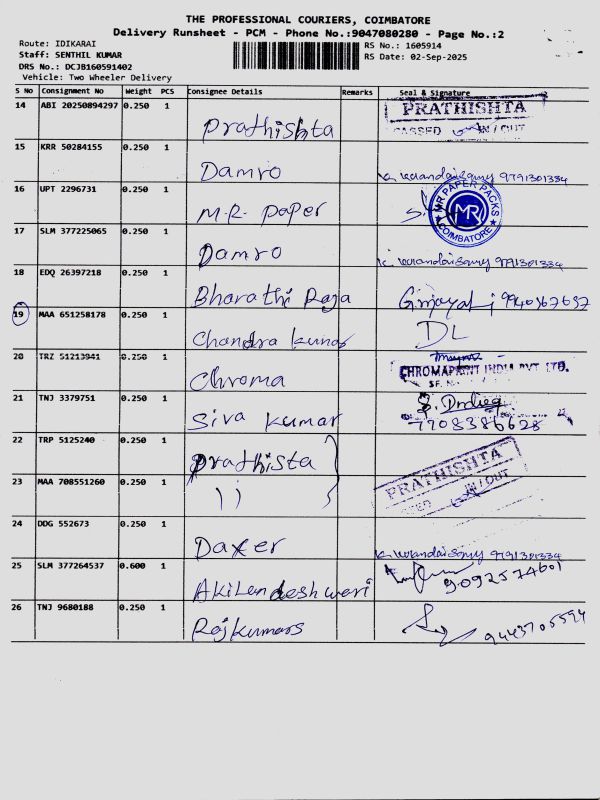 THE PROFESSIONAL COURIERS, COIMBATORE
Delivery Runsheet - PCM - Phone No.:9047080280 - Page No.:2
Route: IDIKARAI RS No.: 1605914
Staff: SENTHIL KUMAR RS Date: 02-Sep-2025
DRS No.: DCJB160591402
Vehicle: Two Wheeler Delivery
S No Consignment No Weight PCS Consignee Details Remarks Seal & Signature
14 ABI 20250894297 0.250 1 PRATHISHTA
Prathishta PASSED IN / OUT
15 KRR 50284155 0.250 1
Damro 9791301334
16 UPT 2296731 0.250 1 MR PAPER PACKS
M.R. Paper MR
COIMBATORE
17 SLM 377225065 0.250 1
Damro 9791301334
18 EDQ 26397218 0.250 1
Bharathi Raja
19 MAA 651258178 0.250 1
Chandra kumar DL
20 TRZ 51213941 0.250 1
Chroma CHROMAPRINT INDIA PVT. LTD.
21 TNJ 3379751 0.250 1
Siva kumar 7708386628
22 TRP 5125240 0.250 1
Prathista PRATHISHTA
23 MAA 708551260 0.250 1 IN / OUT
24 DDG 552673 0.250 1
9791301334
25 SLM 377264537 0.600 1
Akilandeshwari 9092574601
26 TNJ 9680188 0.250 1
Rajkumars 9443705594